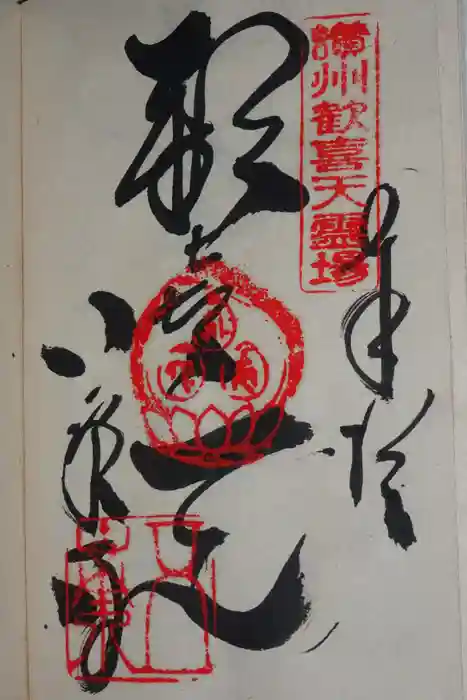 讃州歓喜天霊場
奉拝
歓喜天
八栗寺